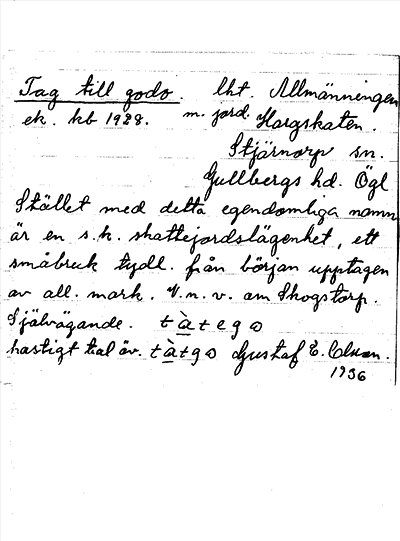 Tag till godo. lht. Allmänningen
ek. kb 1928. m. jord. Hargskaten.
Stjärnorp sn.
Gullbergs hd. Ögl
Stället med detta egendomliga namn
är en s.k. skattejordslägenhet, ett
småbruk tydl. från början upptagen
av all. mark. V.n.v. om Skogstorp.
Självägande. tàtego
hastigt tal äv. tàtgo Gustaf E. Olsson.
1936